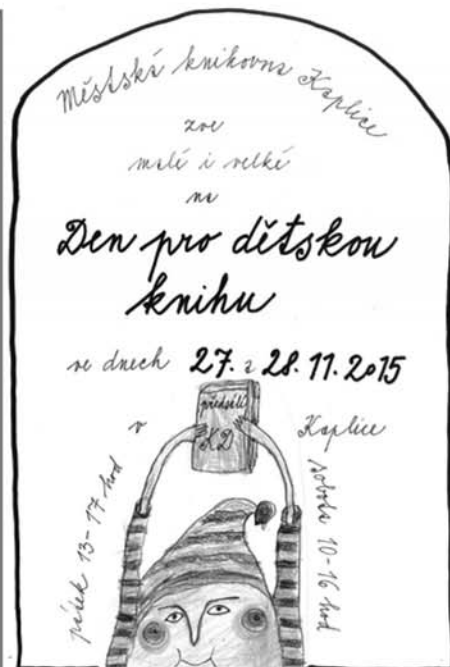 Městská knihovna Kaplice
zve
malé i velké
na
Den pro dětskou
knihu
ve dnech 27. a 28. 11. 2015
v předsálí KD Kaplice
pátek 13-17 hod
sobota 10-16 hod